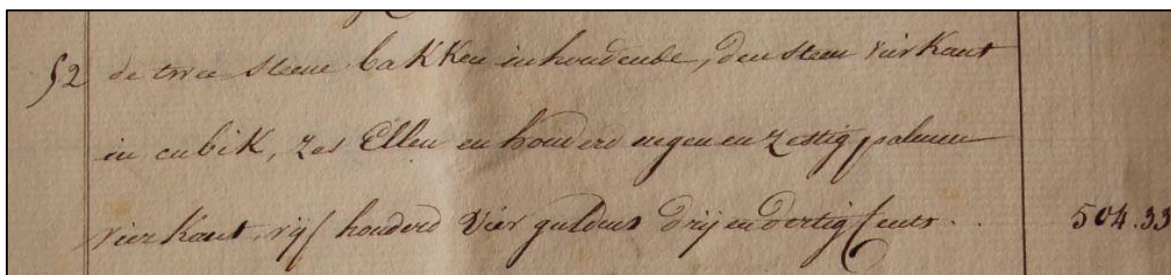 52 de twee steene bakken inhoudende, den steen vierkant
in cubik, zes Ellen en honderd negen en zestig palmen
vierkant, vijf honderd vier guldens drij en dertig Cents . . 504.33